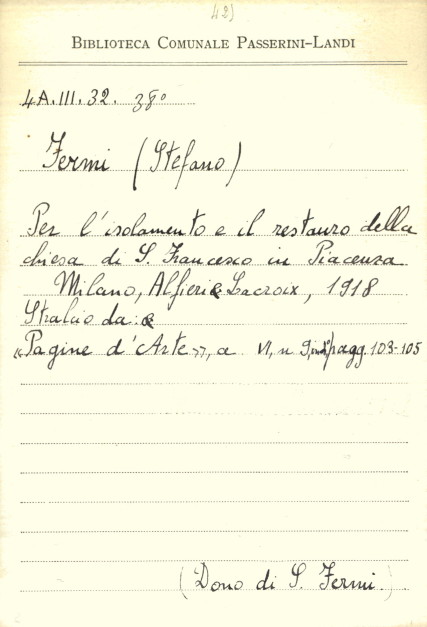 42)
BIBLIOTECA COMUNALE PASSERINI-LANDI
4A.III.32. 38°
Fermi (Stefano)
Per l'isolamento e il restauro della
chiesa di S. Francesco in Piacenza
Milano, Alfieri & Lacroix, 1918
Stralcio da:
"Pagine d'Arte", a VI, n 9, pagg. 103-105
(Dono di S. Fermi)